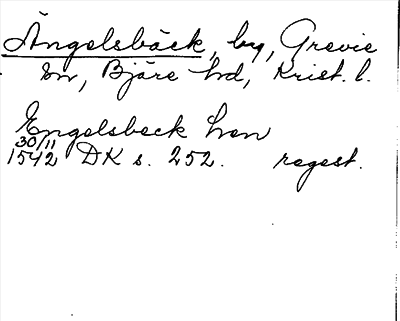 Ängelsbäck, by, Grevie
sn, Bjäre hd, Krist. l.
Engelsbeck hven
30/11
1542 DK s. 252. regest.